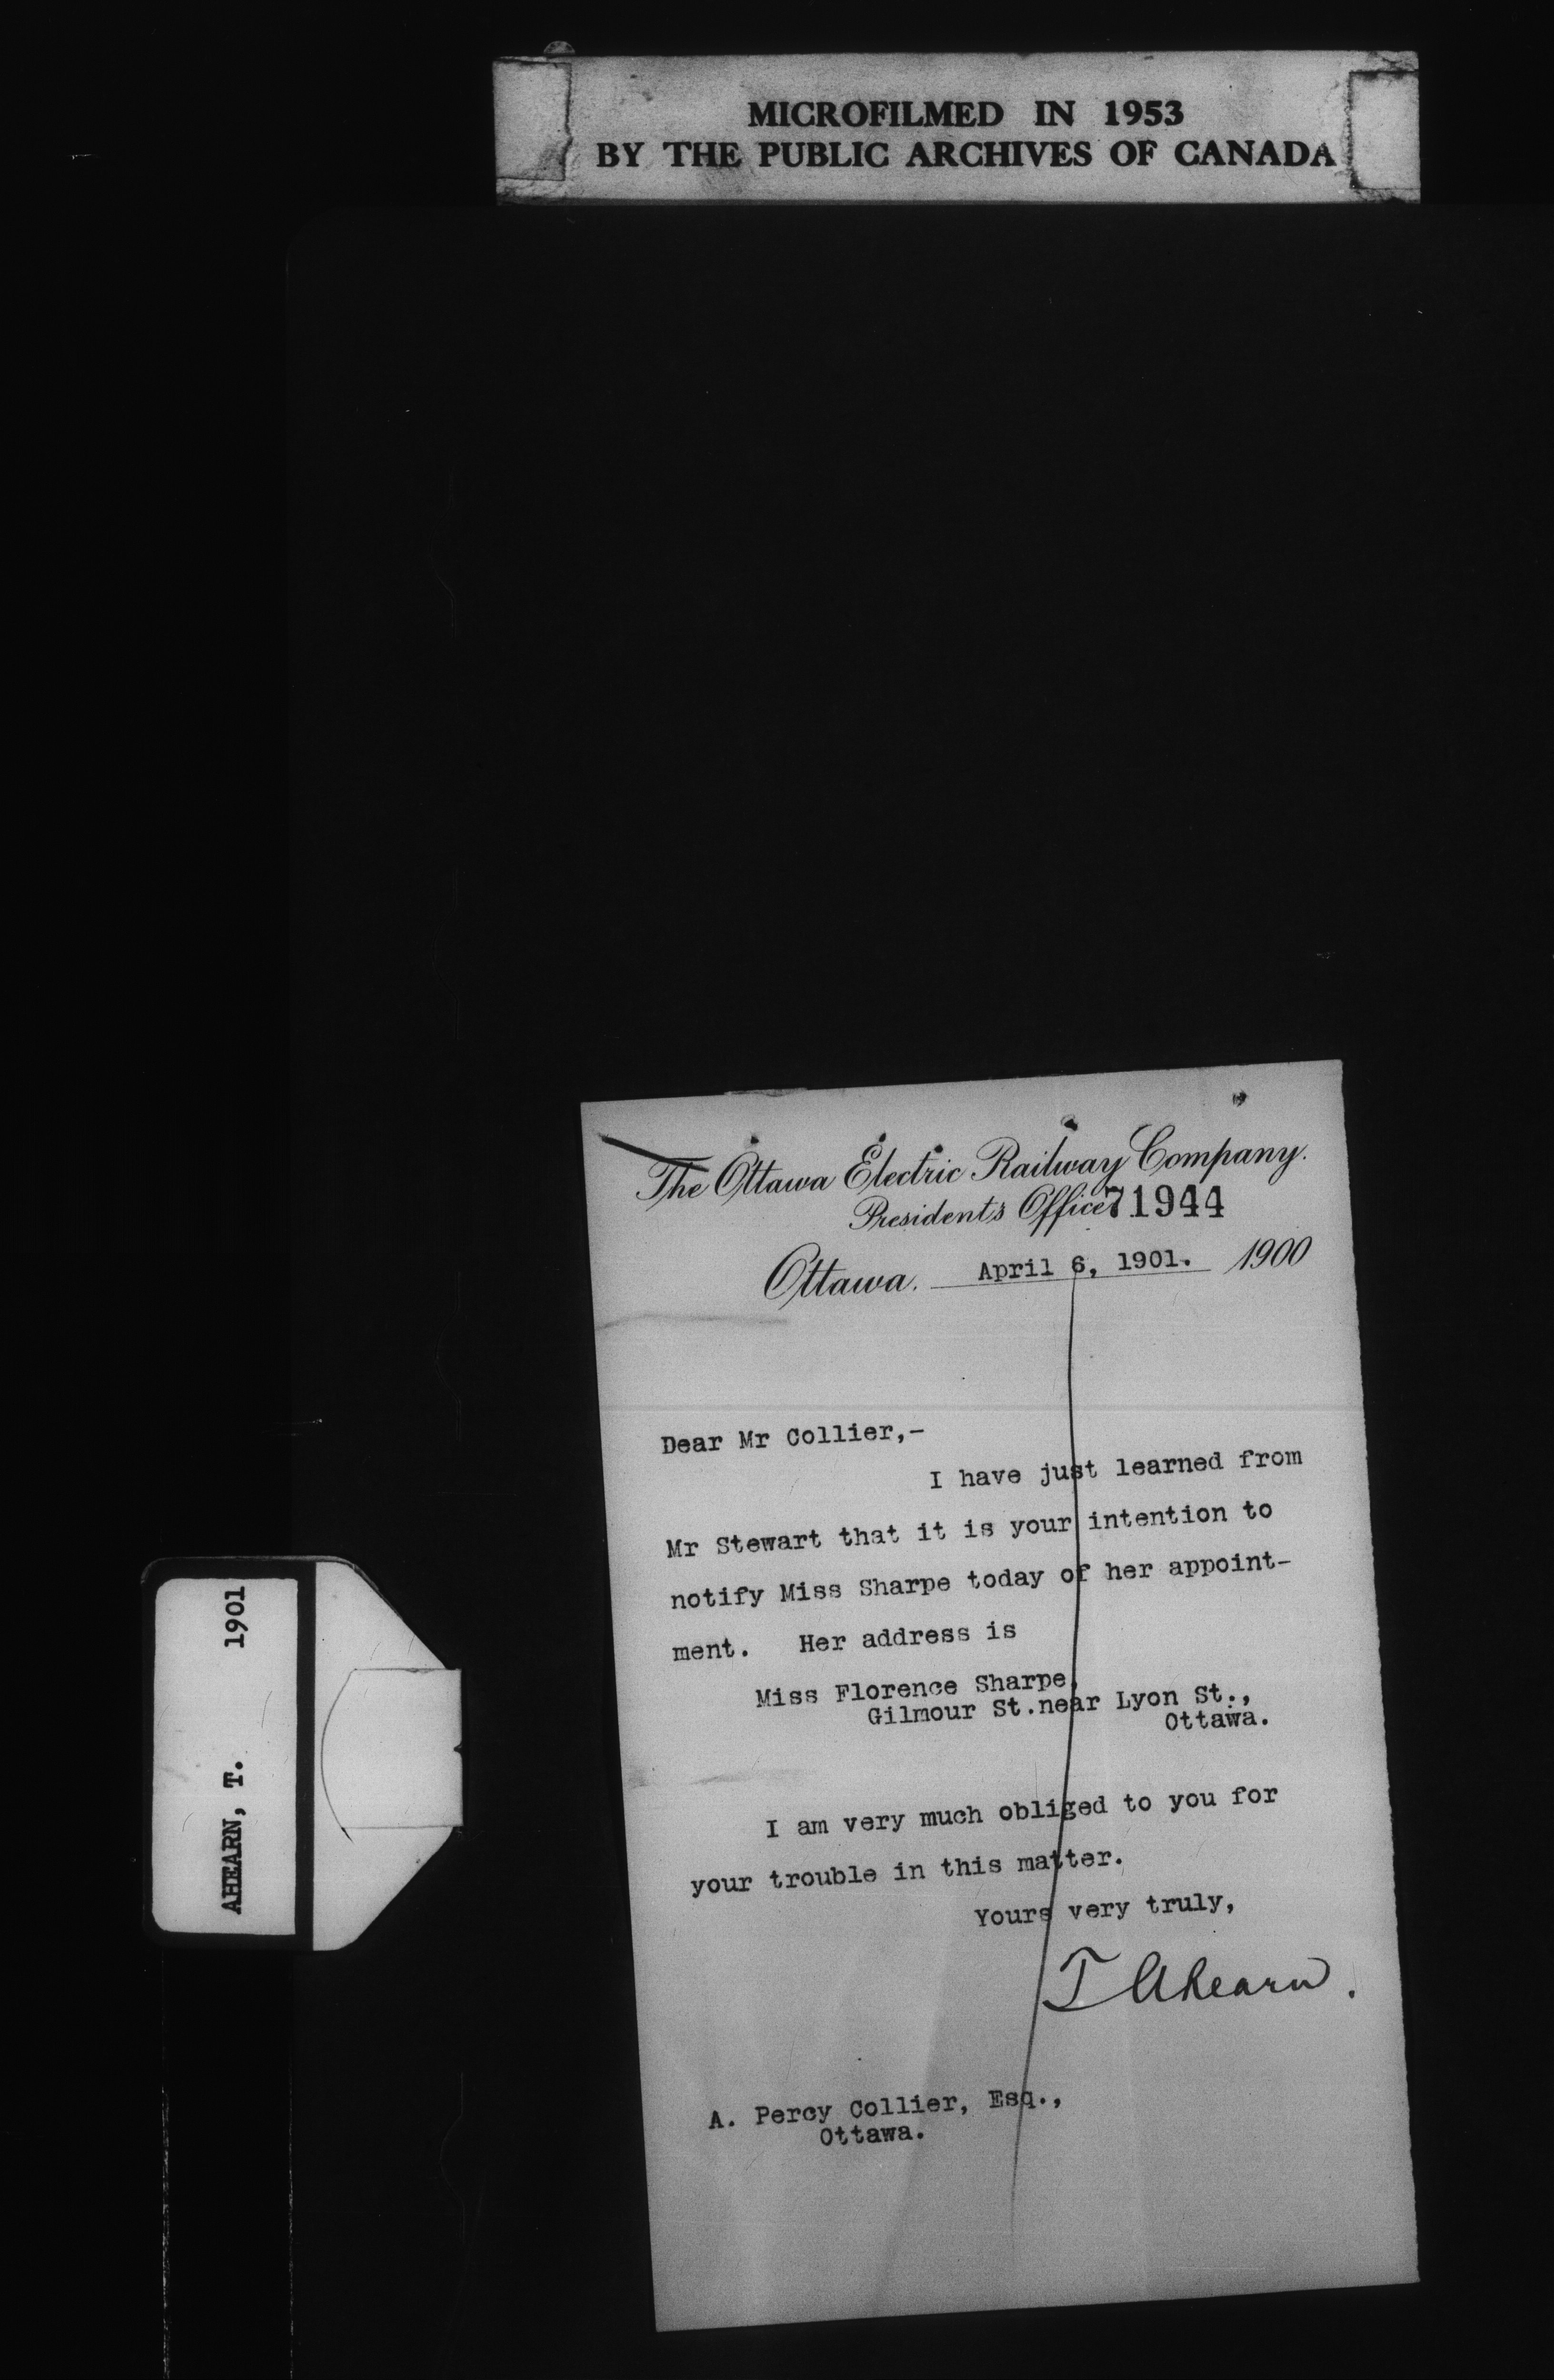 MICROFILMED IN 1953
BY THE PUBLIC ARCHIVES OF CANADA
The Ottawa Electric Railway Company.
President's Office
71944
Ottawa. April 6, 1901. 1900
Dear Mr Collier,-
I have just learned from
Mr Stewart that it is your intention to
notify Miss Sharpe today of her appoint-
ment. Her address is
Miss Florence Sharpe,
Gilmour St.near Lyon St.,
Ottawa.
I am very much obliged to you for
your trouble in this matter.
Yours very truly,
T Ahearn.
A. Percy Collier, Esq.,
Ottawa.
AHEARN, T. 1901